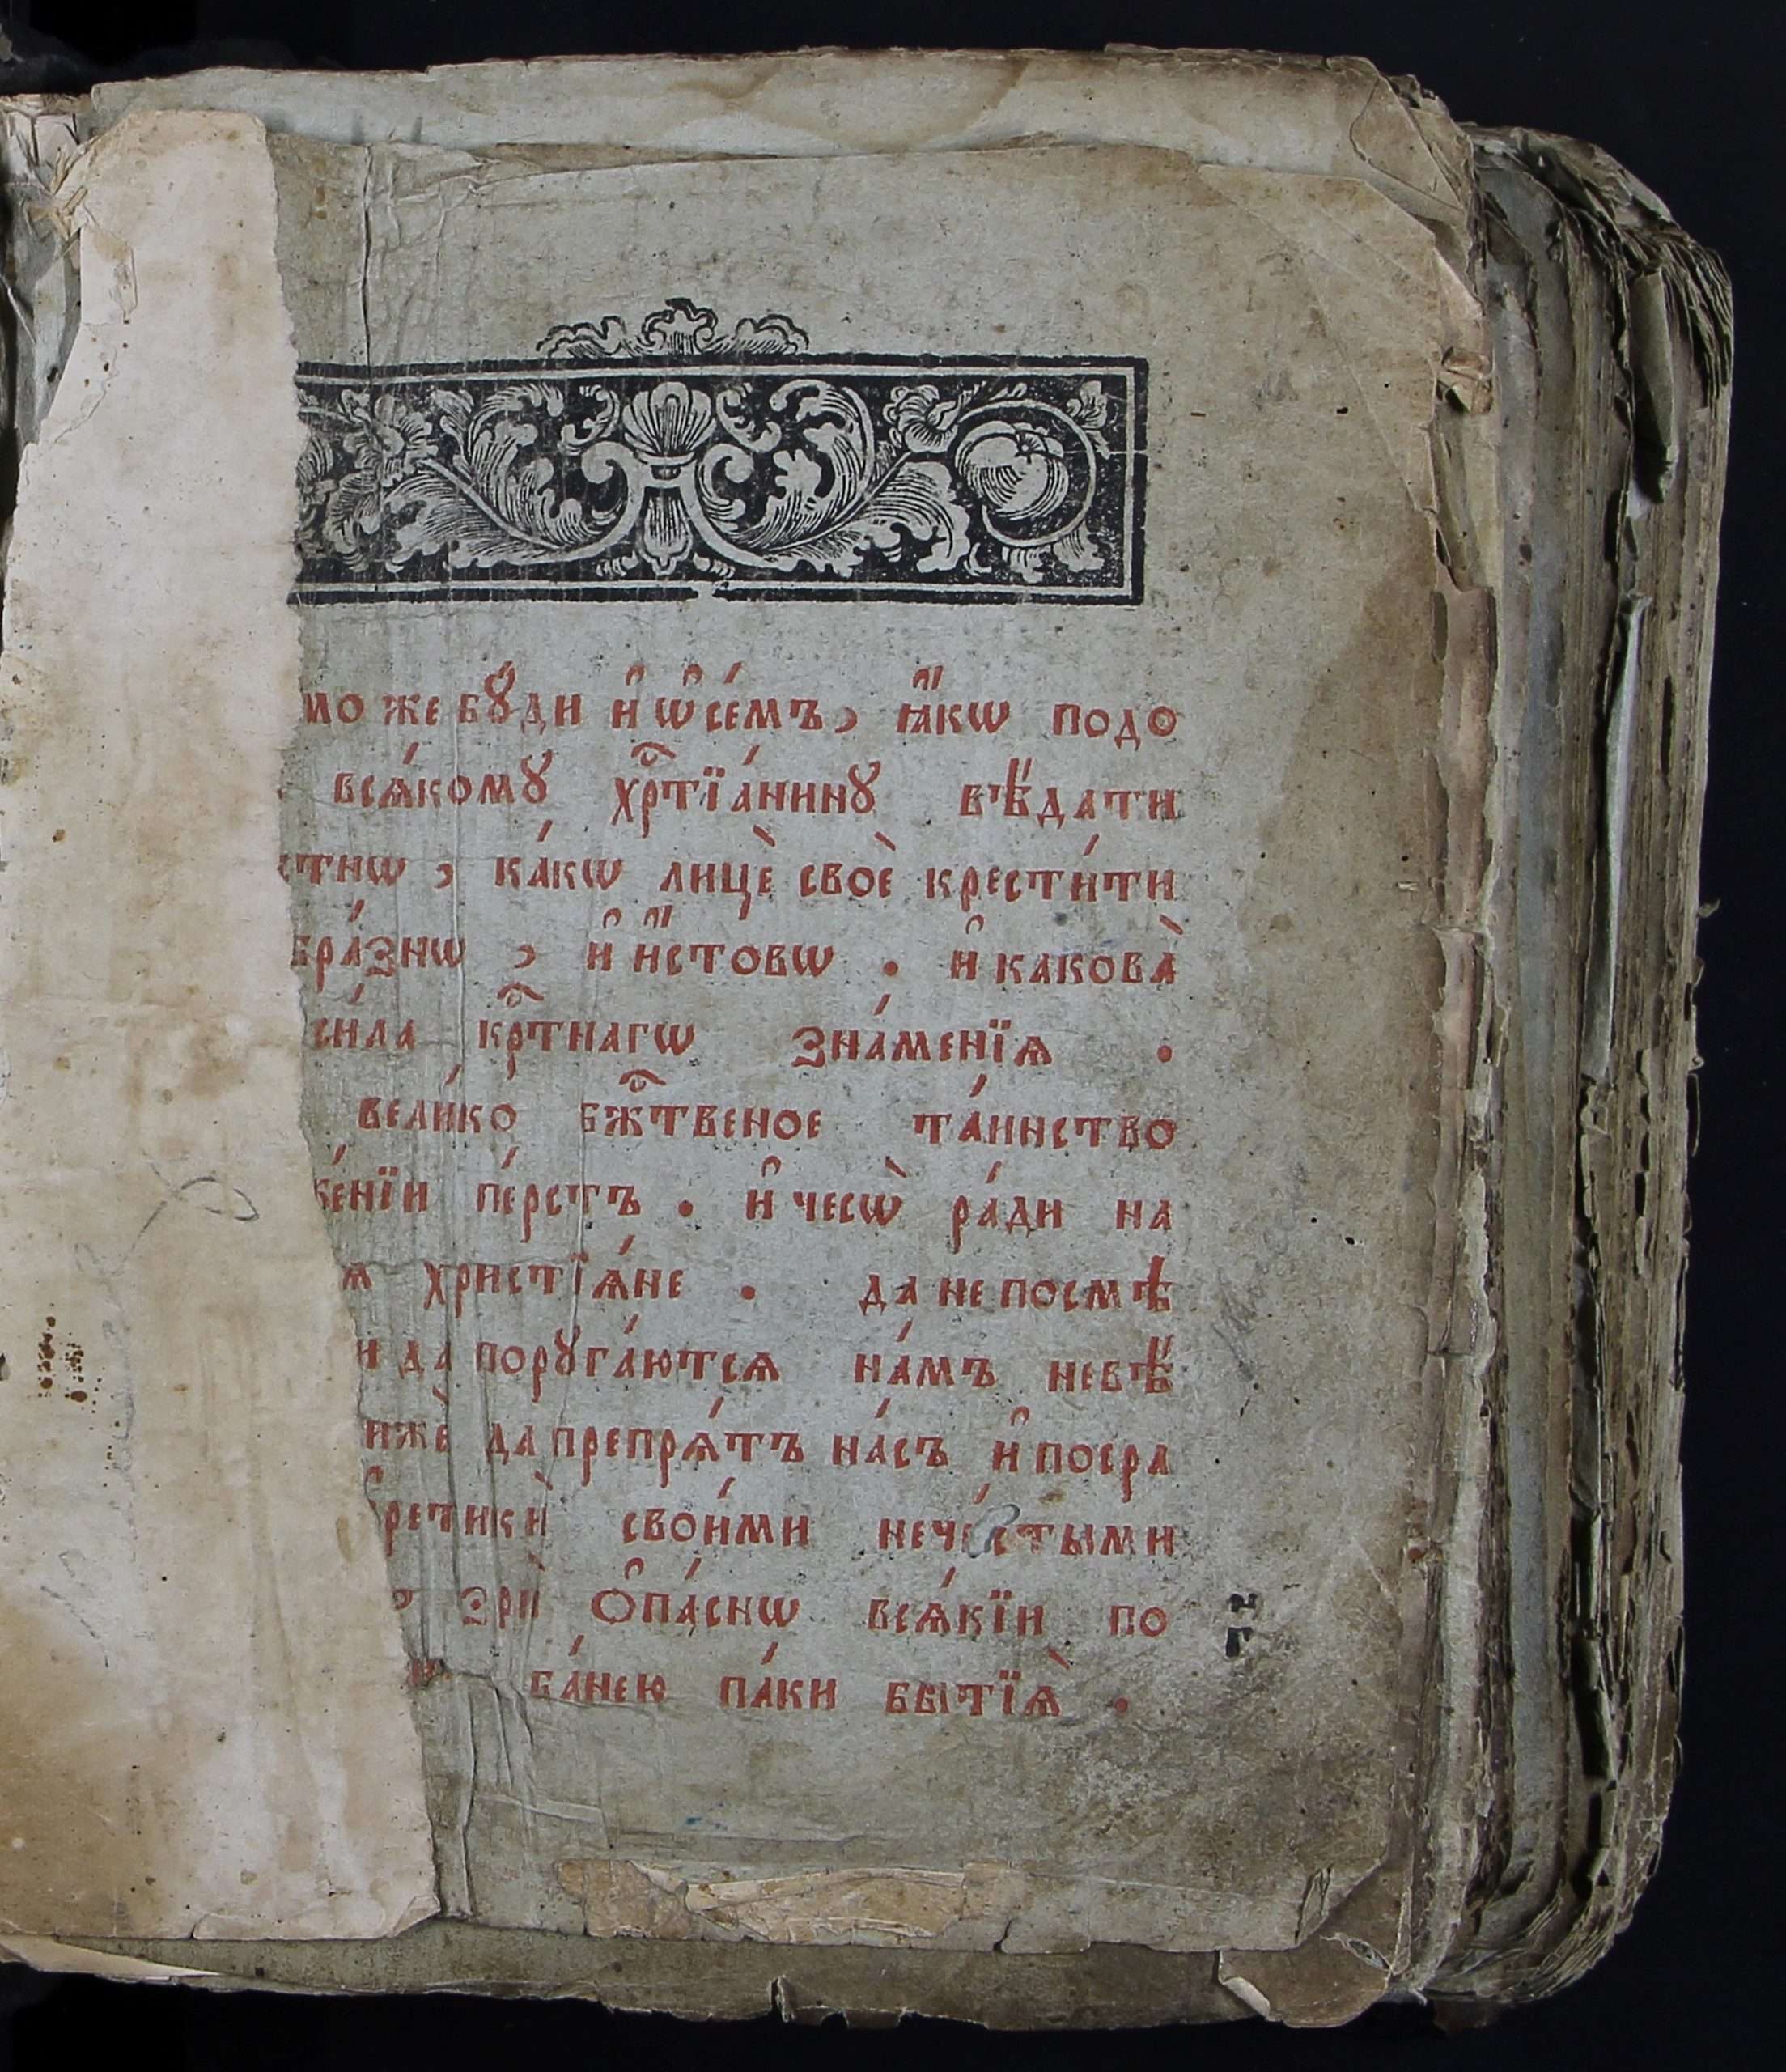 мо же бꙋ́ди и҆ ѡ҆ се́мъ, ꙗ҆́кѡ подо
всѧ́комꙋ хрⷭ҇тїа́нинꙋ вѣ́дати
стнѡ, ка́кѡ лицѐ своѐ крести́ти
бра́знѡ, и҆ и҆́стовѡ. и҆ каковà
си́ла крⷭ҇тнагѡ зна́менїѧ.
вели́ко бжⷭ҇твеное та́инство
же́нїи пе́рстъ. и҆ чесѡ̀ ра́ди на
ѧ христїѧ́не. да не посмѣ
и да порꙋга́ютсѧ на́мъ невѣ́
нижѐ да препрѧ́тъ на́съ и҆ посра
ретикѝ свои́ми нече́стыми
зрѝ ѻ҆па́снѡ всѧ́кїи по
ба́нею па́ки бытїѧ̀.